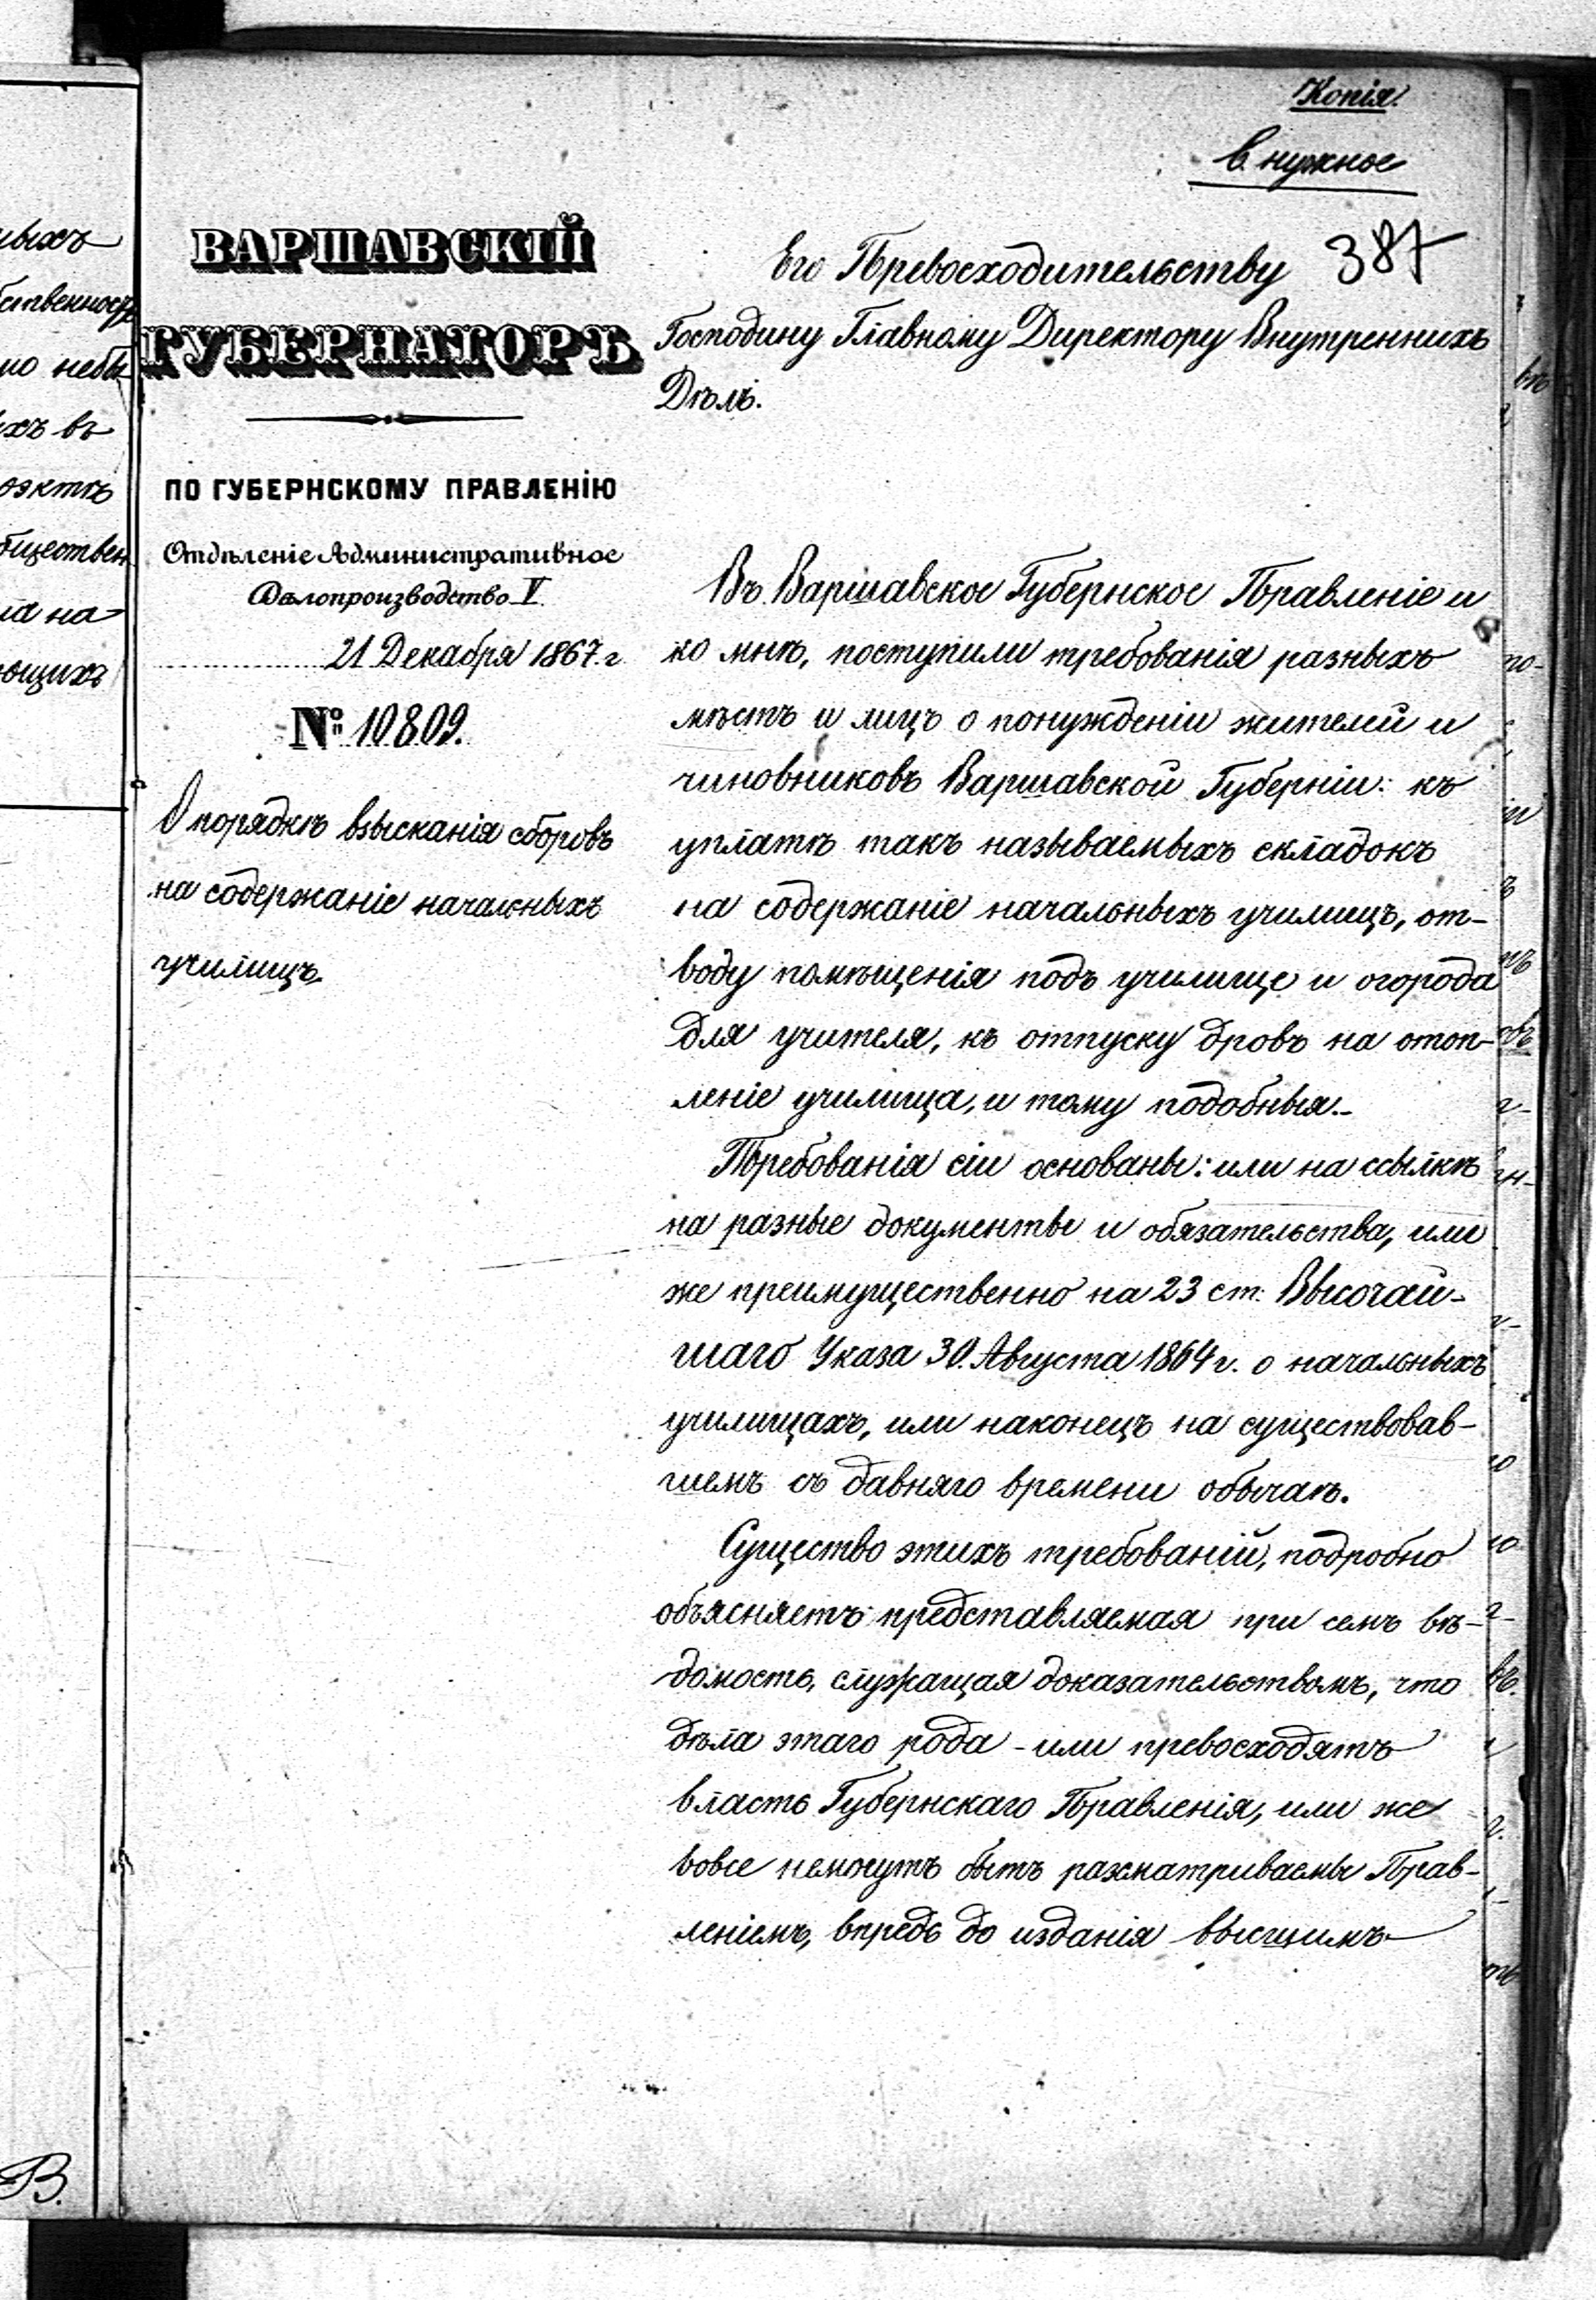 Копія.
В. нужное
387
ВАРШАВСКІЙ
ГУБЕРНАТОРЪ
ПО ГУБЕРНСКОМУ ПРАВЛЕНІЮ
Отдѣленіе Административное
Дѣлопроизводство V.
21 Декабря 1867. г
№ 10809.
О порядкѣ взысканія сборовъ
на содержаніе начальныхъ
училищъ.
Его Превосходительству
Господину Главному Директору Внутреннихъ
Дѣлъ.
Въ Варшавское Губернское Правленіе и
ко мнѣ, поступили требованія разныхъ
мѣстъ и лицъ о понужденіи жителей и
чиновниковъ Варшавской Губерніи: къ
уплатѣ такъ называемыхъ складокъ
на содержаніе начальныхъ училищъ, от-
воду помѣщенія подъ училище и огорода
для учителя, къ отпуску дровъ на отоп-
леніе училища, и тому подобныя.-
Требованія сіи основаны: или на ссылкѣ
на разные документы и обязательства, или
же преимущественно на 23 ст. Высочай-
шаго Указа 30. Августа 1864 г. о начальныхъ
училищахъ, или наконецъ на существовав-
шемъ съ давняго времени обычаѣ.
Существо этихъ требованій, подробно
объясняетъ представляемая при семъ вѣ-
домость, служащая доказательствомъ, что
дѣла этаго рода - или превосходятъ
власть Губернскаго Правленія, или же
вовсе немогутъ быть разсматриваемы Прав-
леніемъ, впредь до изданія высшимъ